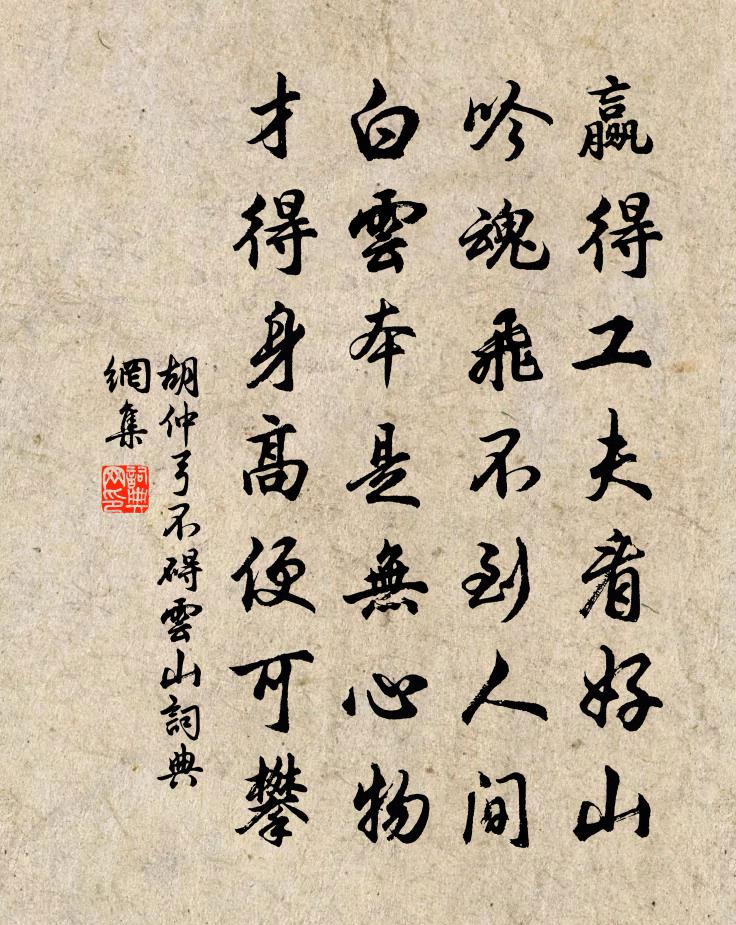 贏得工夫看好山
吟魂飛不到人间
白雲本是無心物
才得身高便可攀
胡仲弓不碍雲山詞典
網集
詞典
网印